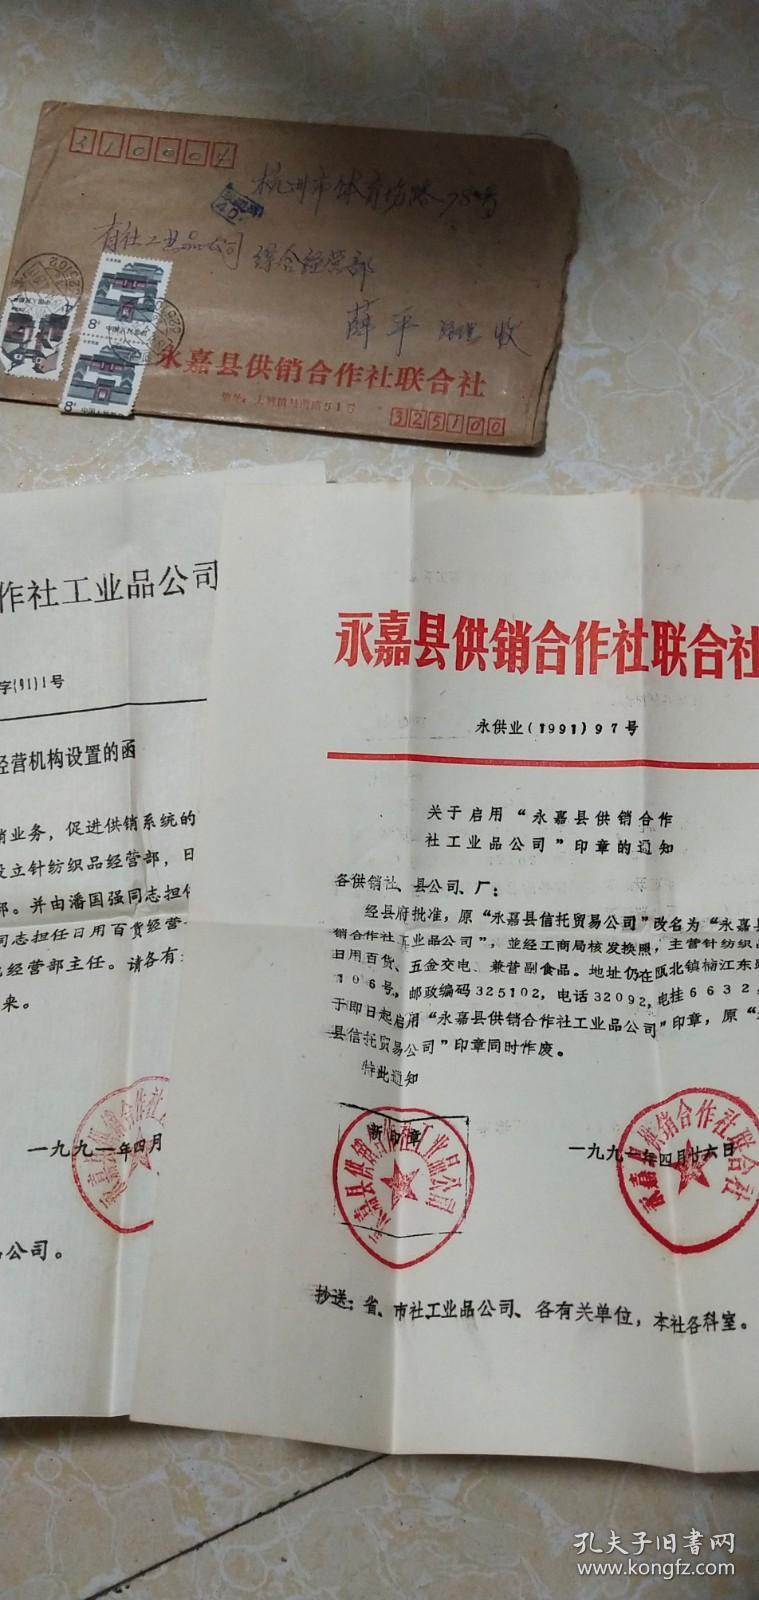 310004
杭州市体育场路78号
省社工业品公司
综合经营部
薛平 收
8分 中国人民邮政
8分
永嘉县供销合作社联合社
325100
作社工业品公司
字(91)1号
经营机构设置的函
销业务，促进供销系统的
设立针纺织品经营部，日
部。并由潘国强同志担任
同志担任日用百货经营
经营部主任。请各有
来。
一九九一年四月
公司。
永嘉县供销合作社联合社
永供业(1991)97号
关于启用“永嘉县供销合作
社工业品公司”印章的通知
各供销社、县公司、厂：
经县府批准，原“永嘉县信托贸易公司”改名为“永嘉县
销合作社工业品公司”，並经工商局核发换照，主营针纺织品
日用百货、五金交电、兼营副食品。地址仍在瓯北镇楠江东路
106号，邮政编码325102，电话32092，电挂6632
于即日起启用“永嘉县供销合作社工业品公司”印章，原“永
县信托贸易公司”印章同时作废。
特此通知
新印章
永嘉县供销合作社工业品公司
一九九一年四月廿六日
永嘉县供销合作社联合社
抄送：省、市社工业品公司、各有关单位，本社各科室。
孔夫子旧书网
www.kongfz.com